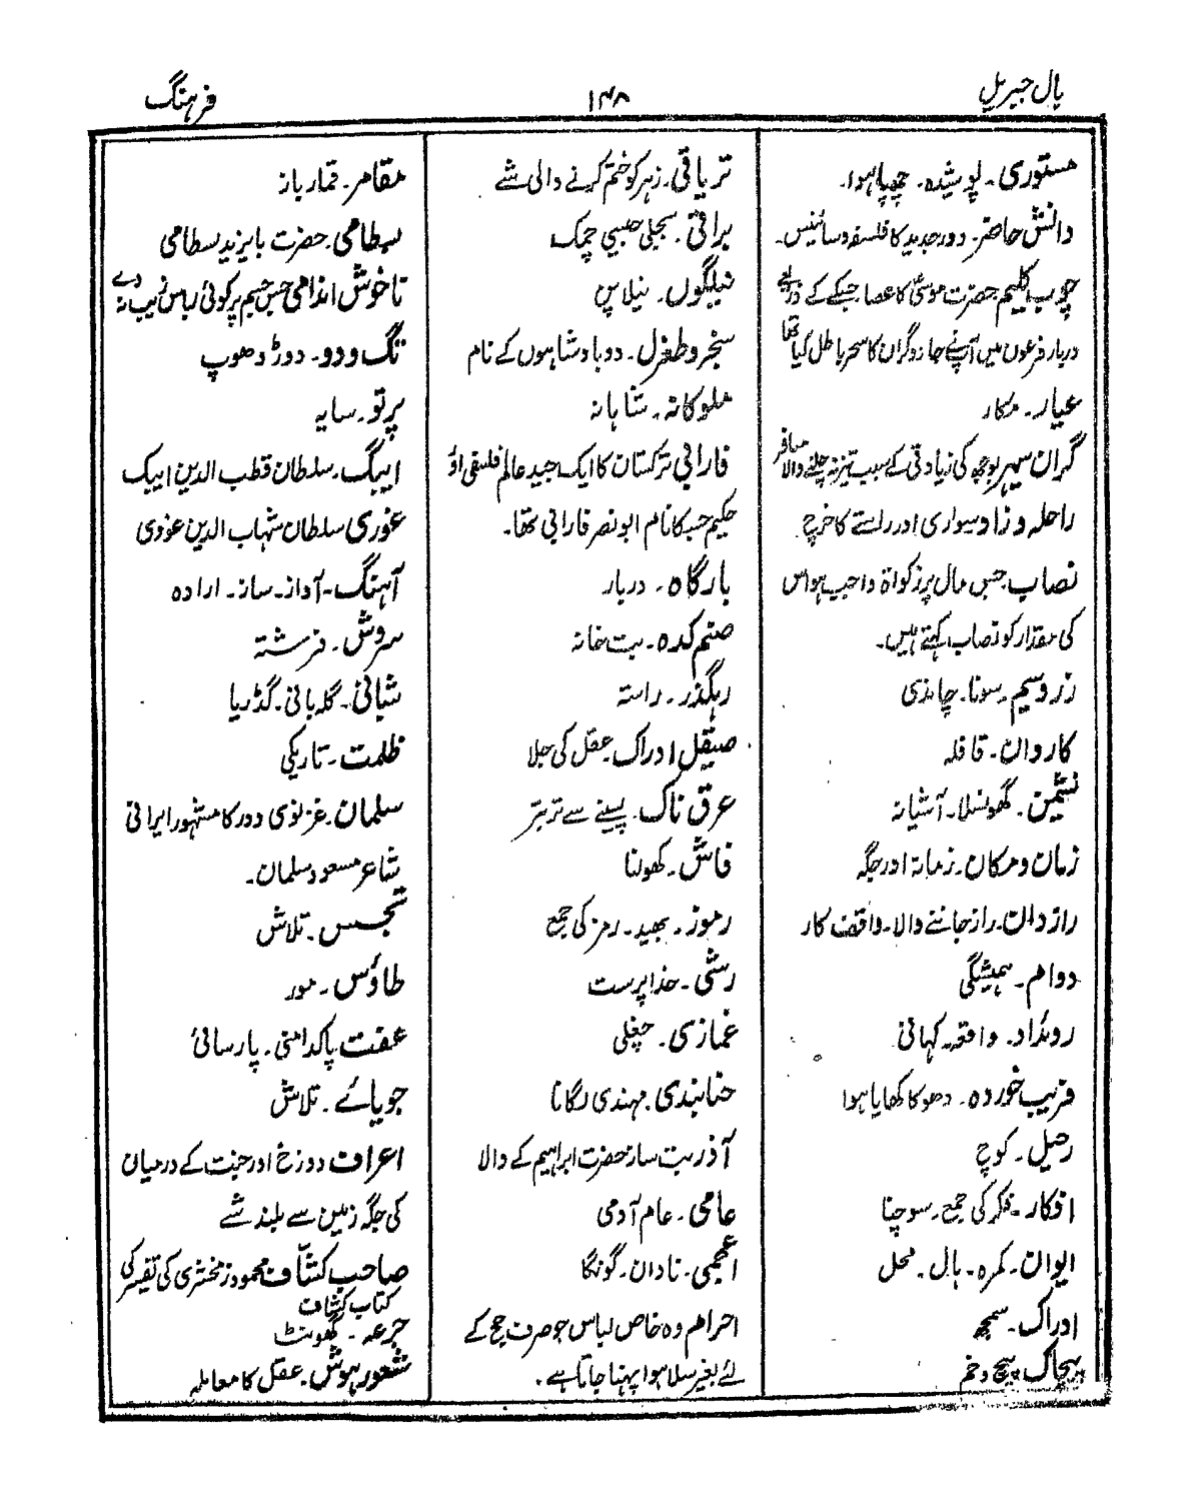 بال جبریل
۱۴۸
فرہنگ
مستوری۔ پوشیدہ۔ چھپا ہوا۔
دانش حاضر۔ دور جدید کا فلسفہ و سائنس۔
چوب کلیم حضرت موسیٰ کا عصا جسکے کے ذریعے
دربار فرعون میں آپنے جادوگران کا سحر باطل کیا تھا
عیار۔ مکار
گران سیر بوجھ کی زیادتی کے سبب تیز نہ چلنے والا مسافر
راحلہ و زاد سواری اور راستے کا خرچ
نصاب جس مال پر زکواۃ واجب ہو اس
کی مقدار کو نصاب کہتے ہیں۔
زر و سیم۔ سونا۔ چاندی
کاروان۔ قافلہ
نشیمن۔ گھونسلا۔ آشیانہ
زمان و مکان۔ زمانہ اور جگہ
رازدان۔ راز جاننے والا۔ واقف کار
دوام۔ ہمیشگی
روئداد۔ واقعہ۔ کہانی
فریب خوردہ۔ دھوکا کھایا ہوا
رحیل۔ کوچ
افکار۔ فکر کی جمع۔ سوچنا
ایوان۔ کمرہ۔ ہال۔ محل
ادراک۔ سمجھ
پیچاک پیچ و خم
تریاقی۔ زہر کو ختم کرنے والی شے
براقی۔ بجلی جیسی چمک
نیلگوں۔ نیلا پن
سنجر و طغرل۔ دو بادشاہوں کے نام
ملوکانہ۔ شاہانہ
فارابی ترکستان کا ایک جید عالم فلسفی اؤ
حکیم جسکا نام ابو نصر فارابی تھا۔
بارگاہ۔ دربار
صنم کدہ۔ بت خانہ
رہگذر۔ راستہ
صیقل ادراک۔ عقل کی جلا
عرق ناک۔ پسینے سے تربتر
فاش۔ کھولنا
رموز۔ بھید۔ رمز کی جمع
رشی۔ خدا پرست
غمازی۔ چغلی
حنا بندی۔ مہندی لگانا
آذر بت ساز حضرت ابراہیم کے والا
عامی۔ عام آدمی
اعجمی۔ نادان۔ گونگا
احرام وہ خاص لباس جو صرف حج کے
لئے بغیر سلا ہوا پہنا جاتا ہے۔
مقامر۔ قمار باز
بسطامی۔ حضرت بایزید بسطامی
ناخوش اندامی جس جسم پر کوئی لباس زیب نہ دے
تگ و دو۔ دوڑ دھوپ
پرتو۔ سایہ
ایبک۔ سلطان قطب الدین ایبک
غوری سلطان شہاب الدین غوری
آہنگ۔ آواز۔ ساز۔ ارادہ
سروش۔ فرشتہ
شبانی۔ گلہ بانی۔ گڈریا
ظلمت۔ تاریکی
سلمان۔ غزنوی دور کا مشہور ایرانی
شاعر مسعود سلمان۔
تجسس۔ تلاش
طاؤس۔ مور
عفت پاکدامنی۔ پارسائی
جویائے۔ تلاش
اعراف دوزخ اور جنت کے درمیان
کی جگہ زمین سے بلند شے
صاحب کشاف محمود زمخشری کی تفسیر کی
کتاب کشاف
جرعہ۔ گھونٹ
شعور ہوش۔ عقل کا معاملہ